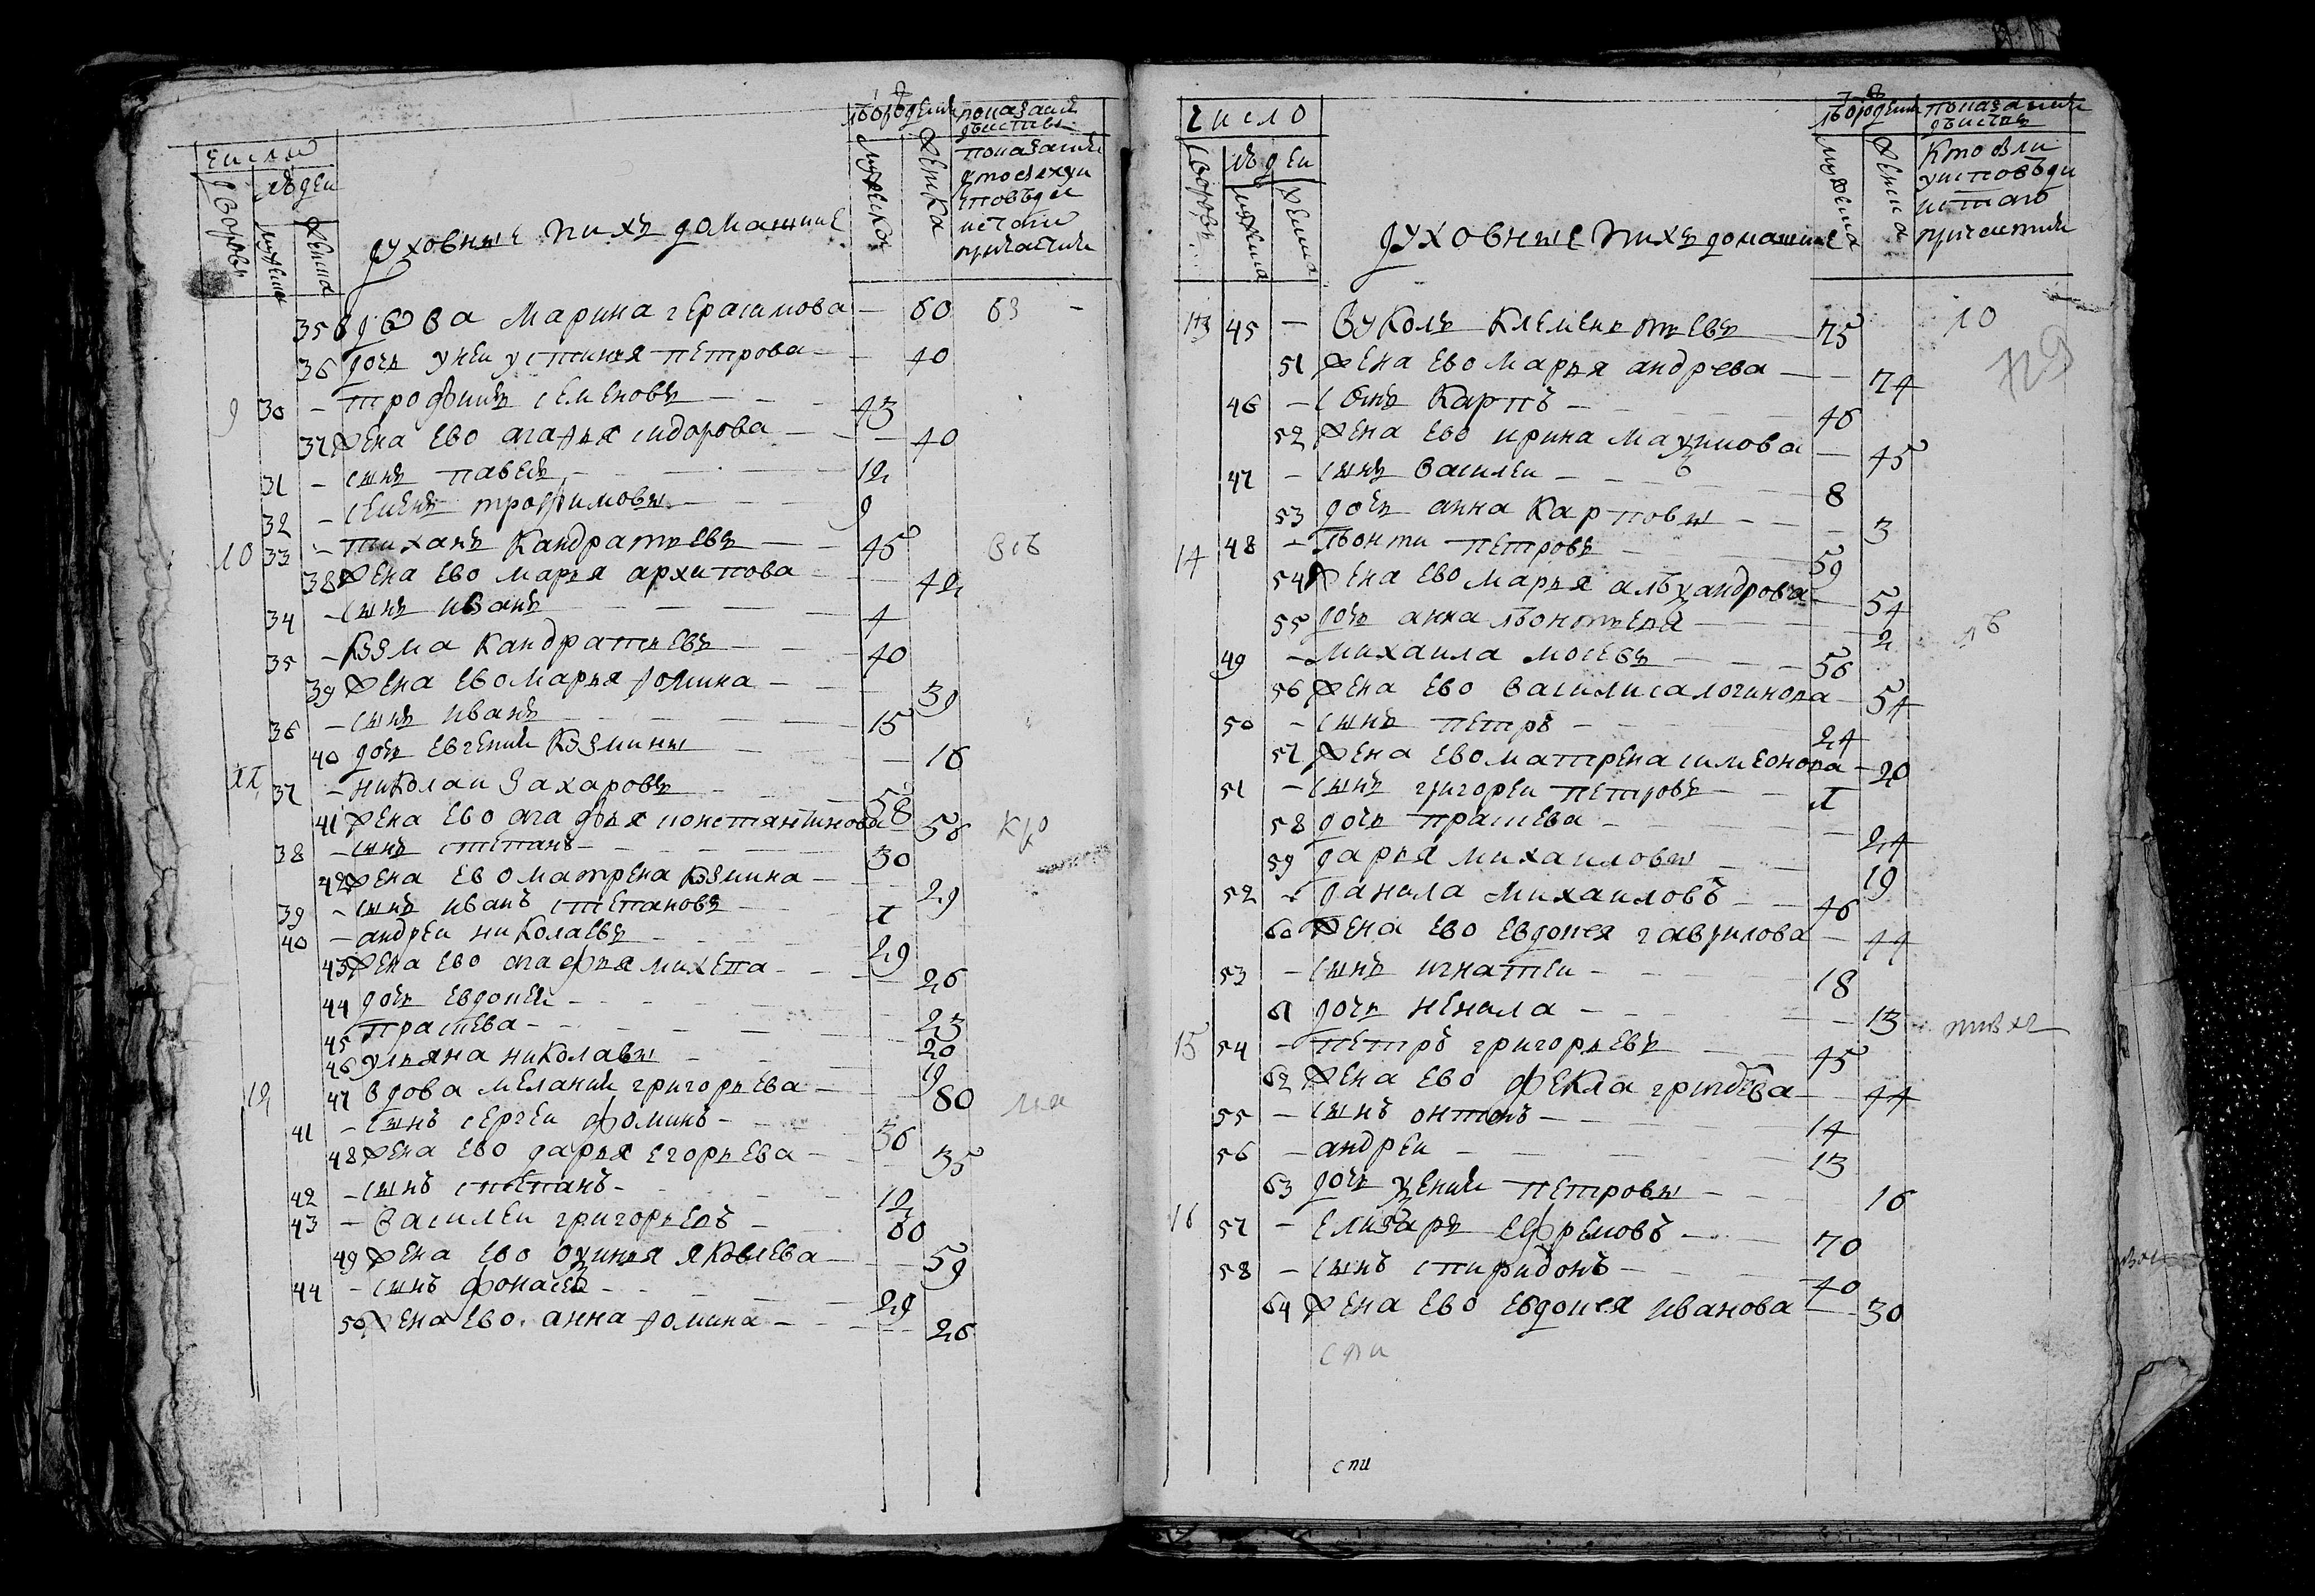 число
людеи
дворовъ
мужеска
женска
духовныє и ихъ домашниє
мужеска
женска
показание
показание
35 вдова Марина герасимова — 60
36 дочь у неи устинья петрова — 40
9 30 — трофимъ семеновъ — 43
37 жена ево агафья сидорова — 40
31 — сынъ павелъ — 12
32 — семенъ трофимовы — 9
10 33 — тиханъ Кандратьевъ — 45 всѣ
38 жена ево марья архипова — 42
34 — сынъ иванъ — 4
35 — Кузма Кандратьевъ — 40
39 жена ево марья фомина — 39
36 — сынъ иванъ — 15
40 дочь евгения Кузмины — 16
11 37 — николаи Захаровъ — 58
41 жена ево агафья констянтинова 56
38 — сынъ степанъ — 30
42 жена ево матрена Кузмина — 29
39 — сынъ иванъ степановъ — 1
40 — андреи николаевъ — 29
43 жена ево агафья михепа — 26
44 дочь евдокея — 23
45 прасковя — 20
46 ульяна николавы — 19
12 47 вдова мелания григорьева — 80
41 — сынъ сергеи фоминъ — 36
48 жена ево дарья егорьева — 35
42 — сынъ степанъ — 12
43 — василеи григорьевъ — 60
49 жена ево оксинья яковлева — 59
44 — сынъ фонасеи — 29
50 жена ево анна фомина — 26
число
людеи
дворовъ
мужеска
женска
духовныє и ихъ домашниє
мужеска
женска
показание
кто были
у исповѣди
13 45 — вуколъ клементьевъ — 75 10
51 жена ево марья андрева — 74
46 — сынъ Карпъ — 46
52 жена ево ирина максимова — 45
47 — сынъ василеи — 8
53 дочь анна Карповы — 3
14 48 — лѣонти петровъ — 59
54 жена ево марья алѣксандрова — 54
55 дочь анна лѣонтьева — 2
49 — михаила мосевъ — 56
56 жена ево василиса логинова — 54
50 — сынъ петръ — 24
57 жена ево матрена симеонова — 20
51 — сынъ григореи петровъ — 1
58 дочь прасковя — 24
59 дарья михаиловы — 19
52 — данила михаиловъ — 46
60 жена ево евдокея гаврилова — 44
53 — сынъ игнатеи — 18
61 дочь ненила — 13
15 54 — петръ григорьевъ — 45
62 жена ево фекла — 44
55 — сынъ онтонъ — 14
56 — андреи — 13
63 дочь ксения петровы — 16
16 57 — елизаръ ефремовъ — 70
58 — сынъ спиридонъ — 40
64 жена ево евдокея иванова — 30
спи
спи